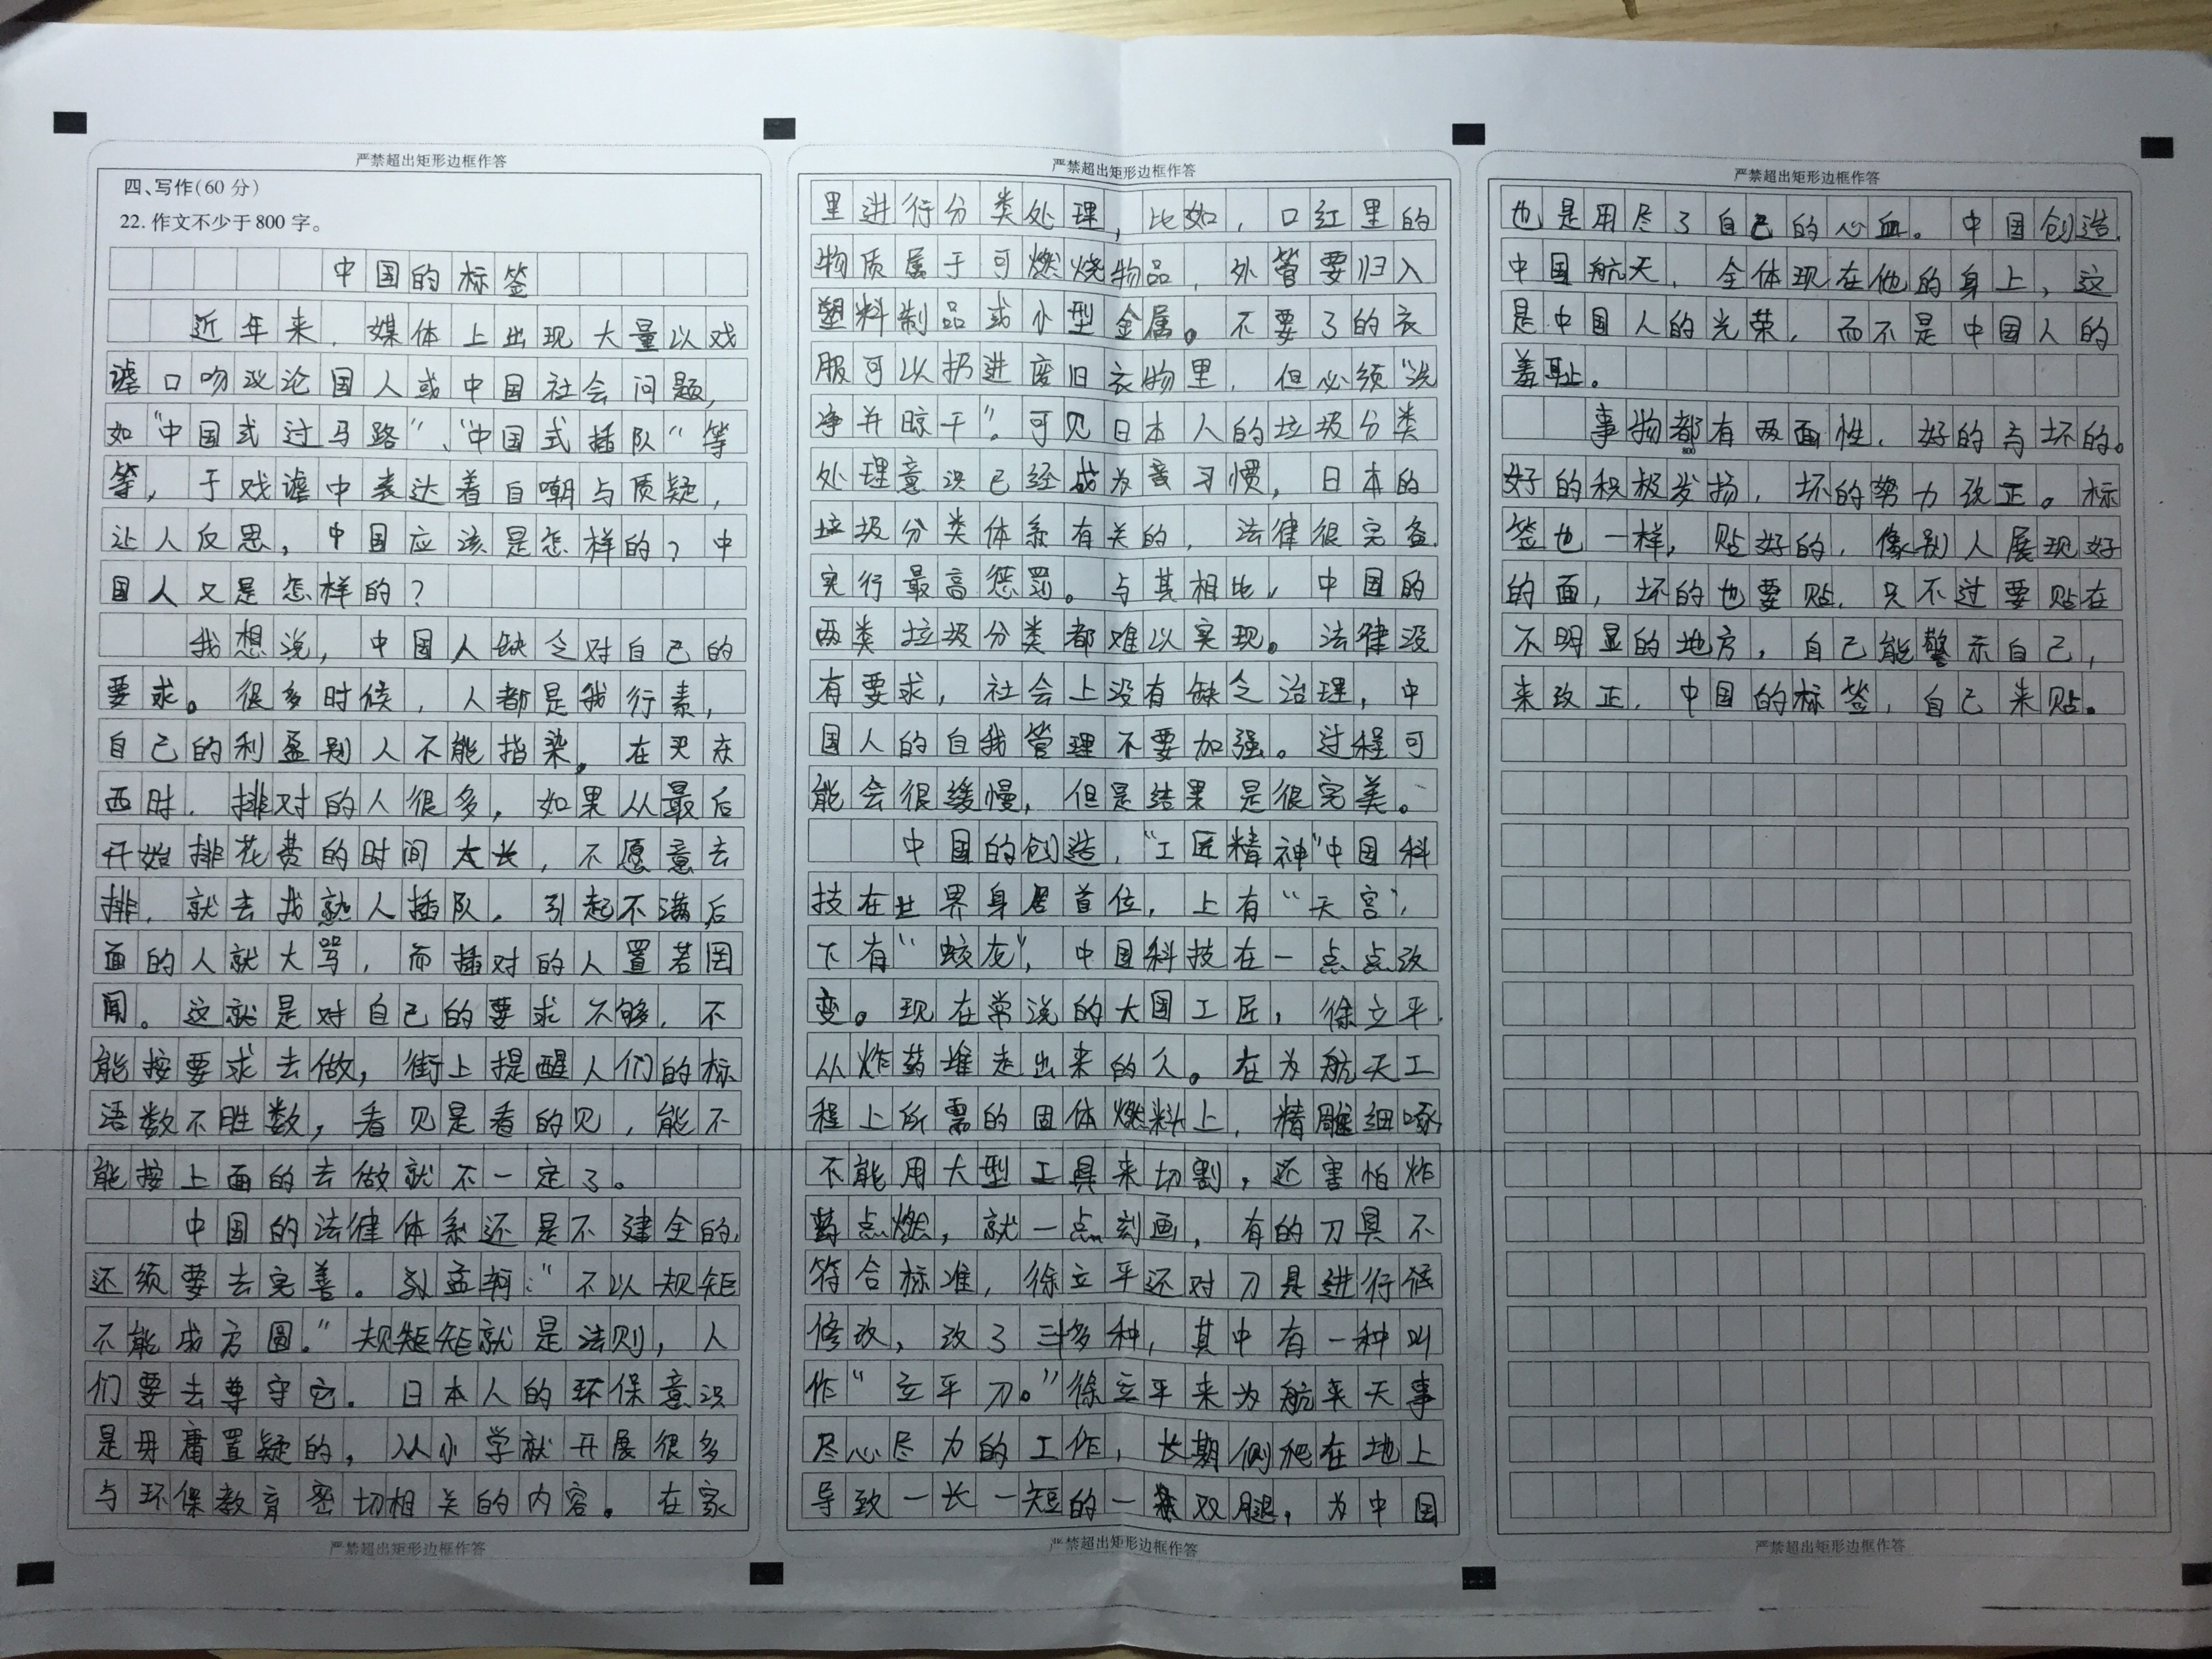 严禁超出矩形边框作答
四、写作(60 分)
22. 作文不少于 800 字。
中国的标签
近年来,媒体上出现大量以戏
谑口吻议论国人或中国社会问题,
如"中国式过马路"、"中国式插队"等
等,于戏谑中表达着自嘲与质疑,
让人反思,中国应该是怎样的?中
国人又是怎样的?
我想说,中国人缺乏对自己的
要求。很多时候,人都是我行素,
自己的利益别人不能指染。在买东
西时,排对的人很多,如果从最后
开始排花费的时间太长,不愿意去
排,就去找熟人插队,引起不满后
面的人就大骂,而插对的人置若罔
闻。这就是对自己的要求不够,不
能按要求去做,街上提醒人们的标
语数不胜数,看见是看的见,能不
能按上面的去做就不一定了。
中国的法律体系还是不建全的,
还须要去完善。孟轲:"不以规矩
不能成方圆。"规矩就是法则,人
们要去尊守它。日本人的环保意识
是毋庸置疑的,从小学就开展很多
与环保教育密切相关的内容。在家
严禁超出矩形边框作答
严禁超出矩形边框作答
里进行分类处理,比如,口红里的
物质属于可燃烧物品,外管要归入
塑料制品或小型金属。不要了的衣
服可以扔进废旧衣物里,但必须"洗
净并晾干"。可见日本人的垃圾分类
处理意识已经成为习惯,日本的
垃圾分类体系有关的,法律很完备,
实行最高惩罚。与其相比,中国的
两类垃圾分类都难以实现。法律没
有要求,社会上没有缺乏治理,中
国人的自我管理不要加强。过程可
能会很缓慢,但是结果是很完美。
中国的创造,"工匠精神"中国科
技在世界身居首位,上有"天宫",
下有"蛟龙",中国科技在一点点改
变。现在常说的大国工匠,徐立平,
从炸药堆走出来的人。在为航天工
程上所需的固体燃料上,精雕细啄
不能用大型工具来切割,还害怕炸
药点燃,就一点刻画,有的刀具不
符合标准,徐立平还对刀具进行
修改,改了三多种,其中有一种叫
作"立平刀。"徐立平来为航天事
尽心尽力的工作,长期侧爬在地上
导致一长一短的一双腿,为中国
严禁超出矩形边框作答
严禁超出矩形边框作答
也是用尽了自己的心血。中国创造,
中国航天,全体现在他的身上,这
是中国人的光荣,而不是中国人的
羞耻。
事物都有两面性,好的与坏的。
800
好的积极发扬,坏的努力改正。标
签也一样,贴好的,像别人展现好
的面,坏的也要贴,只不过要贴在
不明显的地方,自己能警示自己,
来改正,中国的标签,自己来贴。
严禁超出矩形边框作答